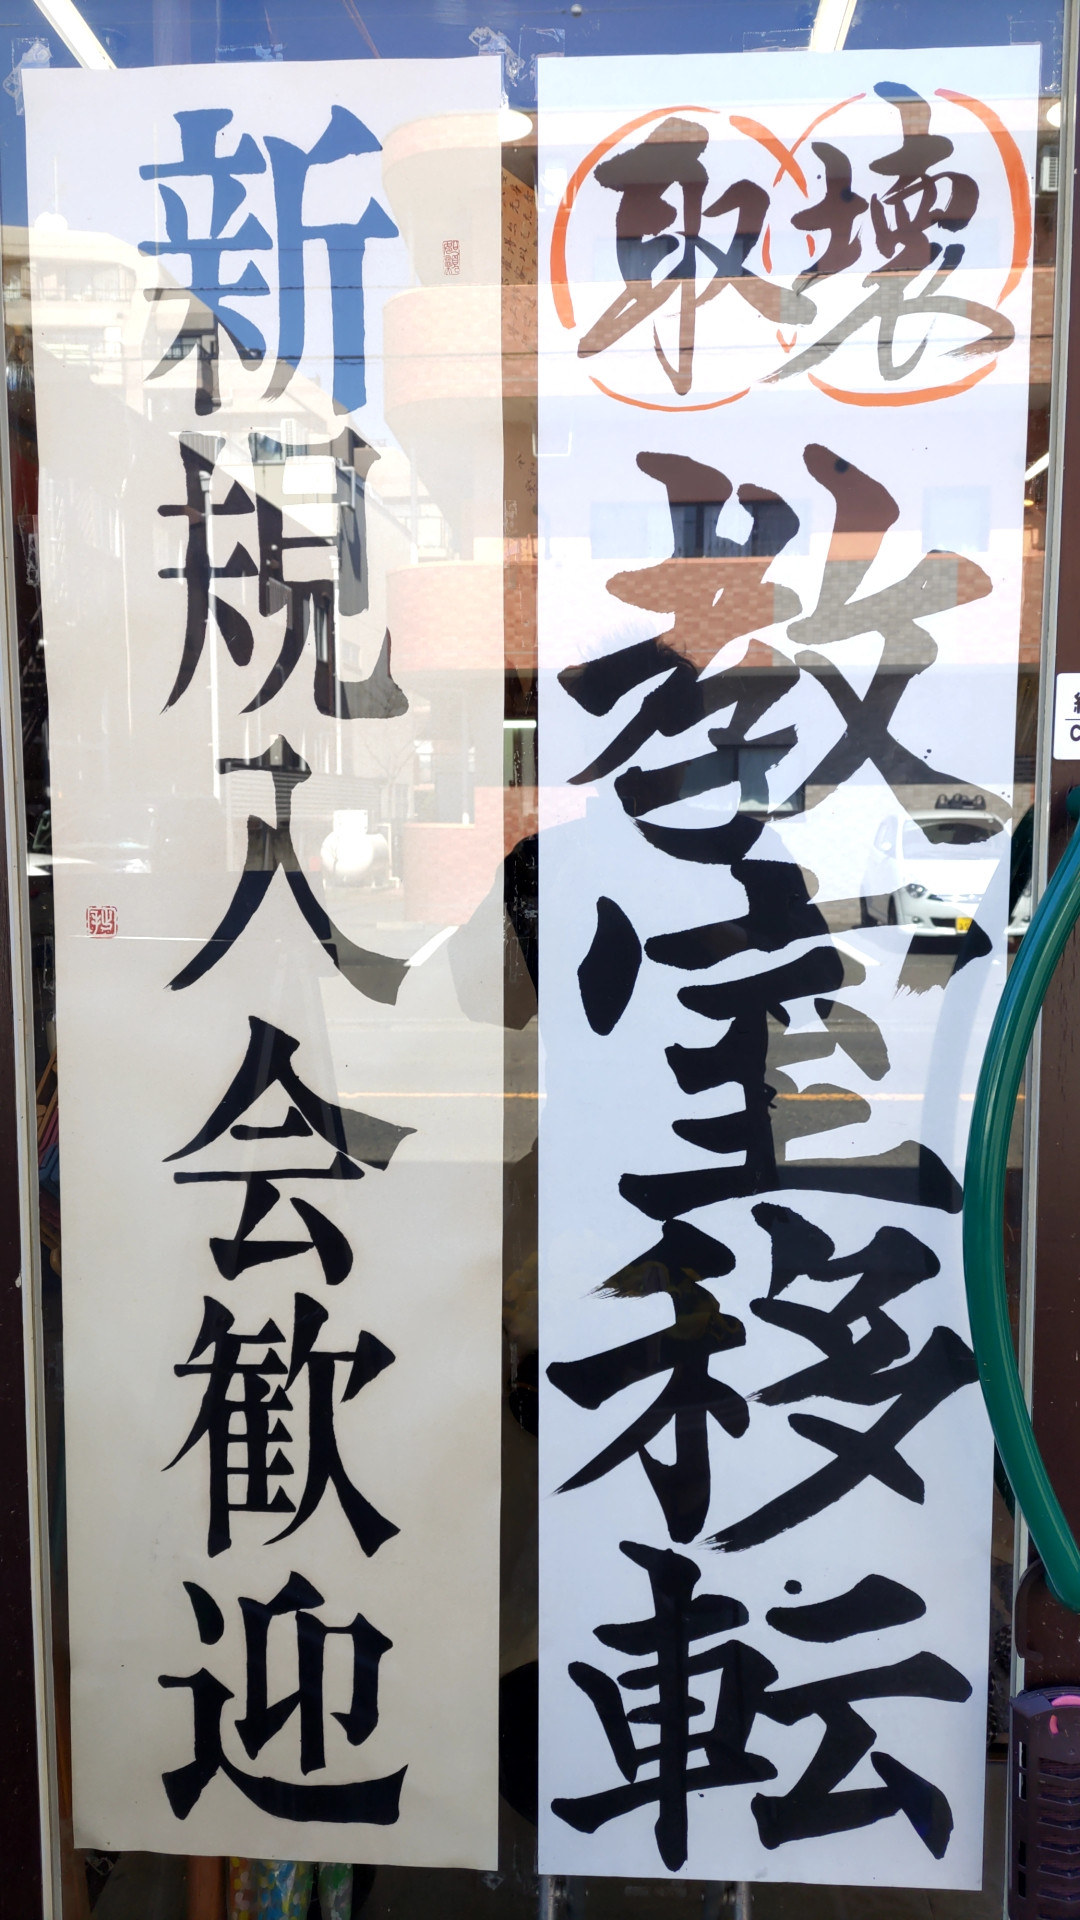 取壊
教室移転
新規入会歓迎